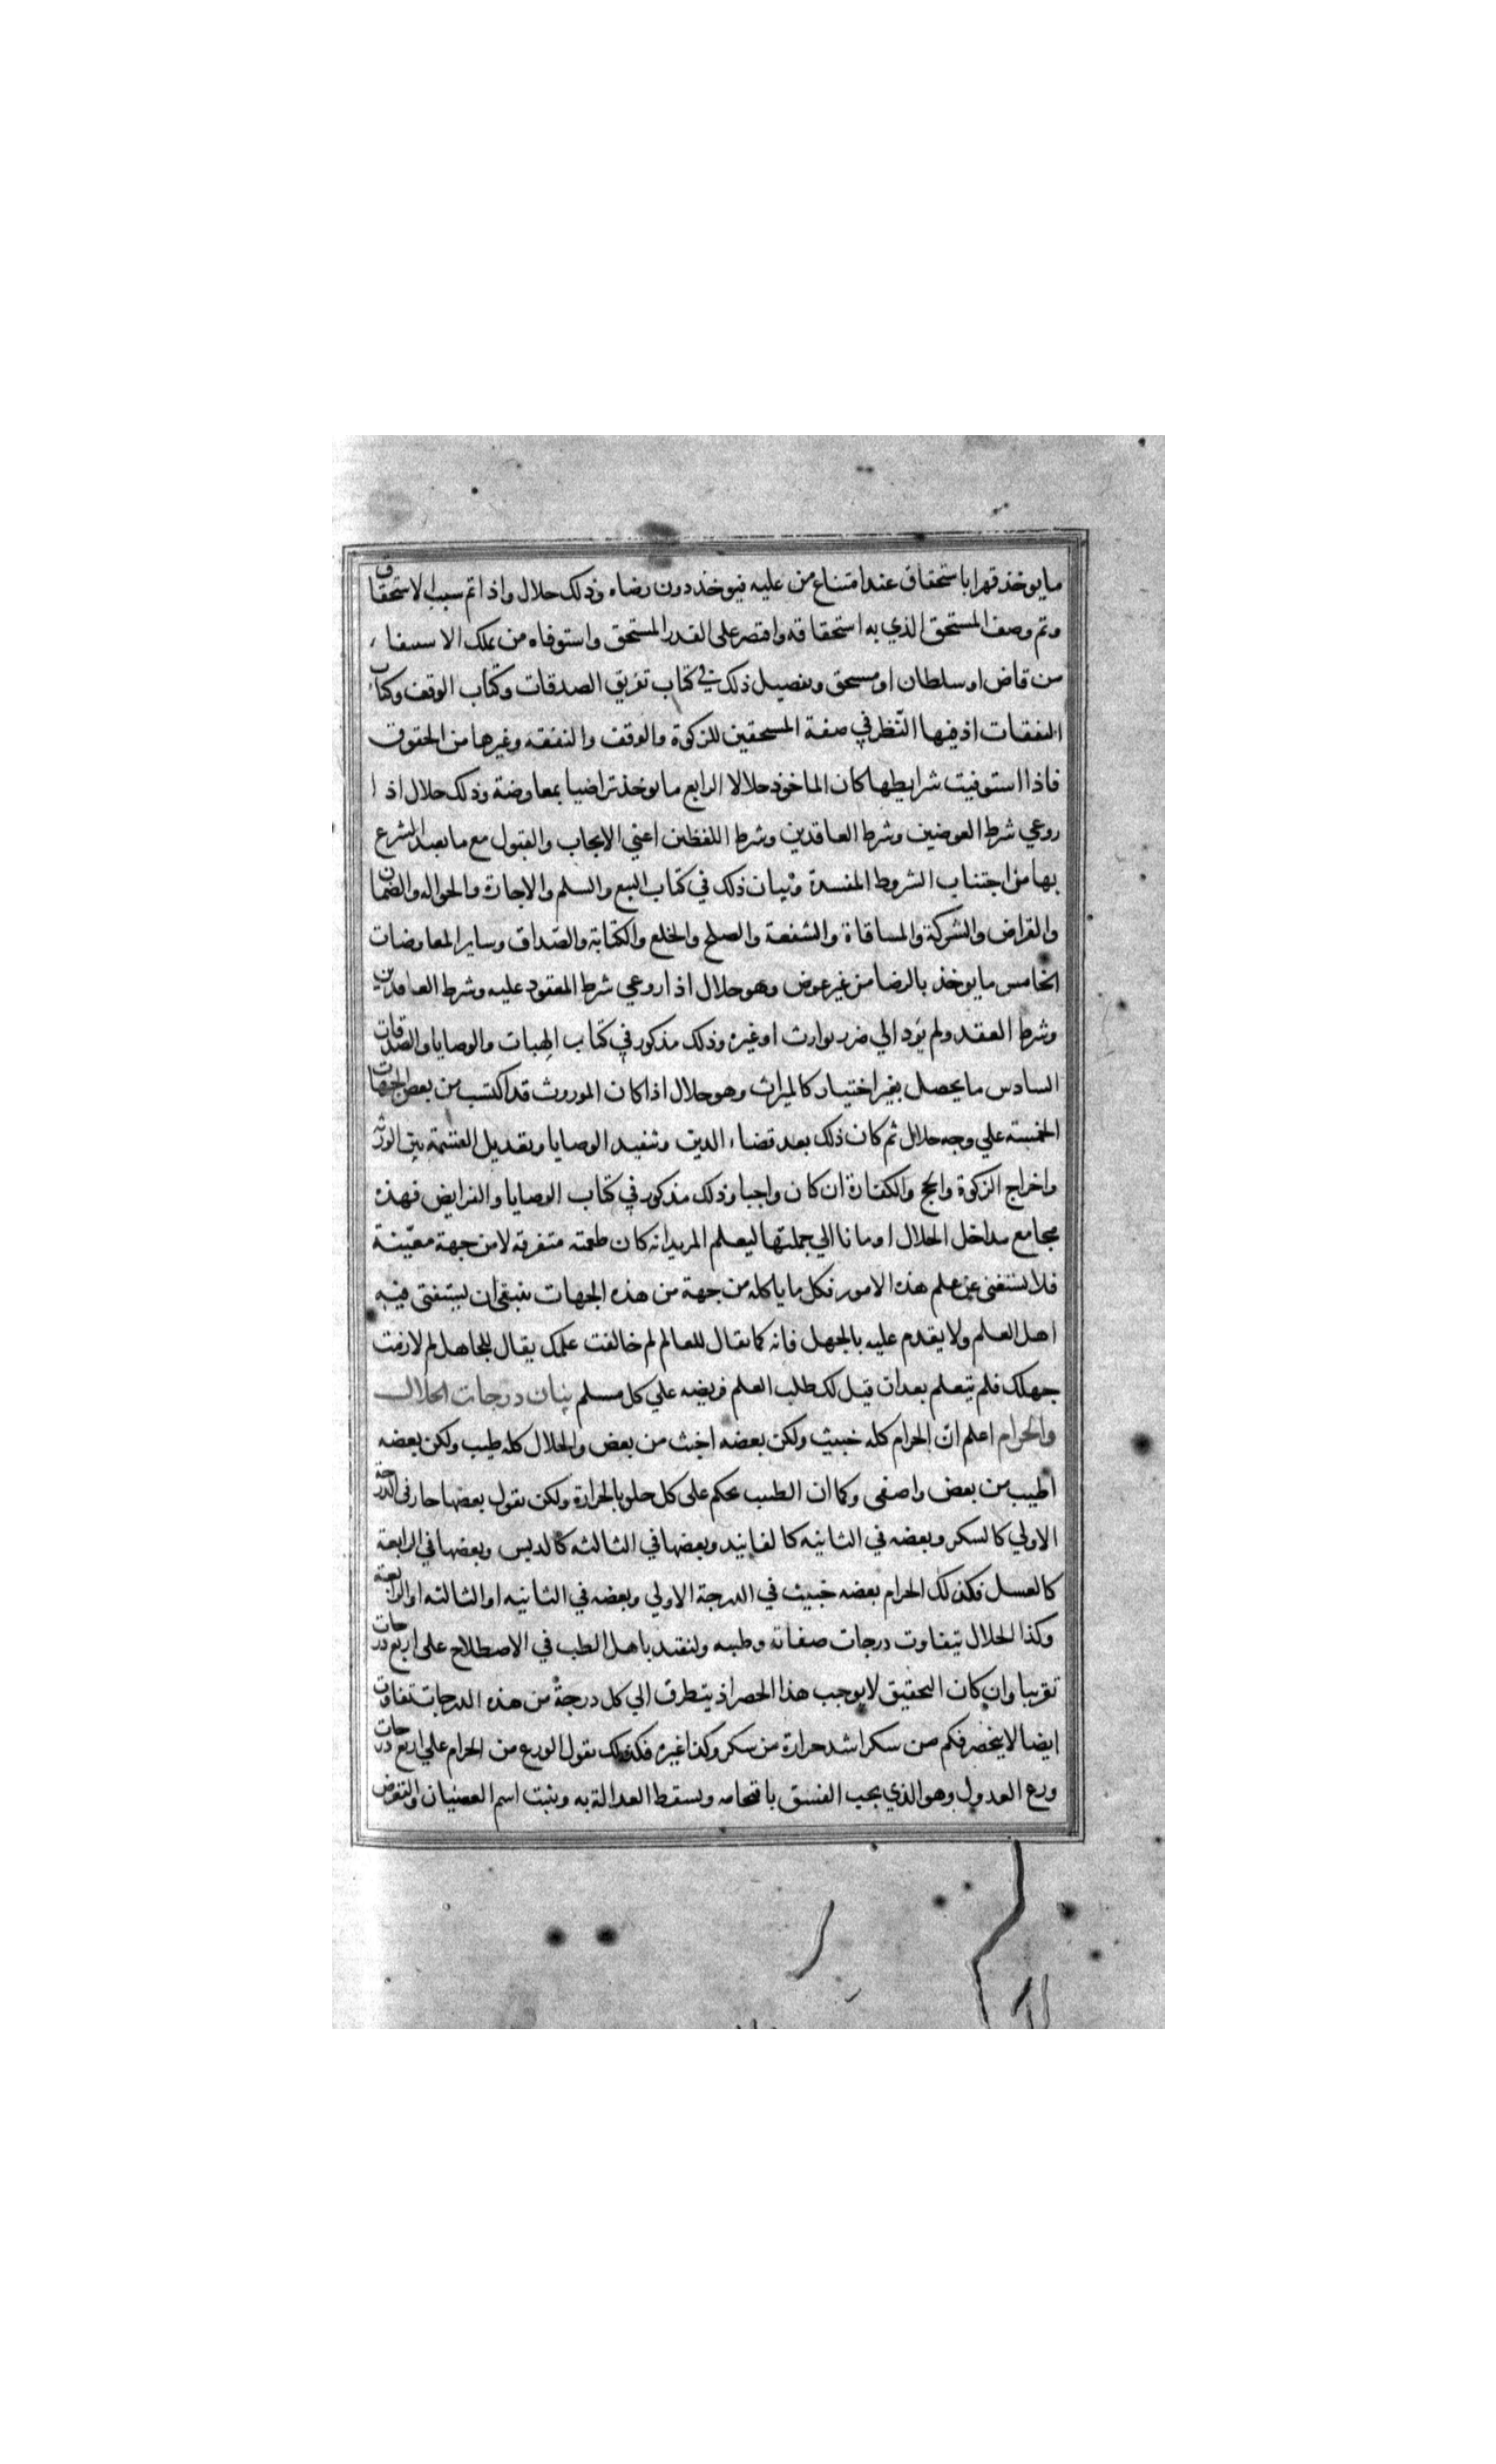 مايوخذ قهرا باستحقاق عند امتناع من عليه فيوخذ دون رضاه وذلك حلال واذا تم سبب الاستحقاق
وتم وصف المستحق الذي به استحقاقه واقتصر على القدر المستحق واستوفاه من يملك الاستيفاء
من قاض او سلطان او مستحق وتفصيل ذلك في كتاب تفريق الصدقات وكتاب الوقف وكتاب
النفقات اذ فيها النّظر في صفة المستحقين للزكوة والوقف والنفقة وغيرها من الحقوق
فاذا استوفيت شرايطها كان الماخوذ حلالا الرابع ما يوخذ تراضيا بمعاوضة وذلك حلال اذا
روعي شرط العوضين وشرط العاقدين وشرط اللفظين اعني الايجاب والقبول مع ما تعبد الشرع
بها من اجتناب الشروط المفسدة وبيان ذلك في كتاب البيع والسلم والاجارة والحواله والضمان
والقراض والشركة والمساقاة والشفعة والصلح والخلع والكتابة والصداق وساير المعاوضات
الخامس مايوخذ بالرضا من غير عوض وهو حلال اذا روعي شرط المعقود عليه وشرط العاقدين
وشرط العقد ولم يود الي ضرر بوارث او غيره وذلك مذكور في كتاب الهبات والوصايا والصدقات
السادس ما يحصل بغير اختيار كالميراث وهو حلال اذا كان الموروث قد اكتسب من بعض الجهات
الخمسة علي وجه حلال ثم كان ذلك بعد قضاء الدين وتنفيذ الوصايا وتعديل القسمة بين الورثه
واخراج الزكوة والحج والكفارة ان كان واجبا وذلك مذكور في كتاب الوصايا والفرايض فهذه
مجامع مداخل الحلال اومانا الي جملتها ليعلم المريد انه كان طعمته متفرقه لا من جهة معيّنة
فلا يستغني عن علم هذه الامور فكل ما ياكله من جهة من هذه الجهات ينبغي ان يستفتى فيه
اهل العلم ولا يقدم عليه بالجهل فانه كما يقال للعالم لم خالفت علمك يقال للجاهل لم لازمت
جهلك فلم تتعلم بعد ان قيل لك طلب العلم فريضه علي كل مسلم بيان درجات الحلال
والحرام اعلم انّ الحرام كله خبيث ولكن بعضه اخبث من بعض والحلال كله طيب ولكن بعضه
اطيب من بعض واصفى وكما ان الطبيب يحكم على كل حلو بالحرارة ولكن يقول بعضها حار في الدرجة
الاولي كالسكر وبعضه في الثانيه كالفانيد وبعضها في الثالثه كالدبس وبعضها في الرابعة
كالعسل فكذلك الحرام بعضه خبيث في الدرجة الاولي وبعضه في الثانيه او الثالثه او الرابعة
وكذا الحلال يتفاوت درجات صفاته وطيبه ولنقتد باهل الطب في الاصطلاح على اربع درجات
تقريبا وان كان التحقيق لا يوجب هذا الحصر اذ يتطرق الي كل درجة من هذه الدرجات تفاوت
ايضا لا ينحصر فكم من سكر اشد حرارة من سكر وكذا غيره فكذلك نقول الورع من الحرام علي اربع درجات
ورع العدول وهو الذي يجب الفسق باقتحامه ويسقط العدالة به ويثبت اسم العصيان والتعرض